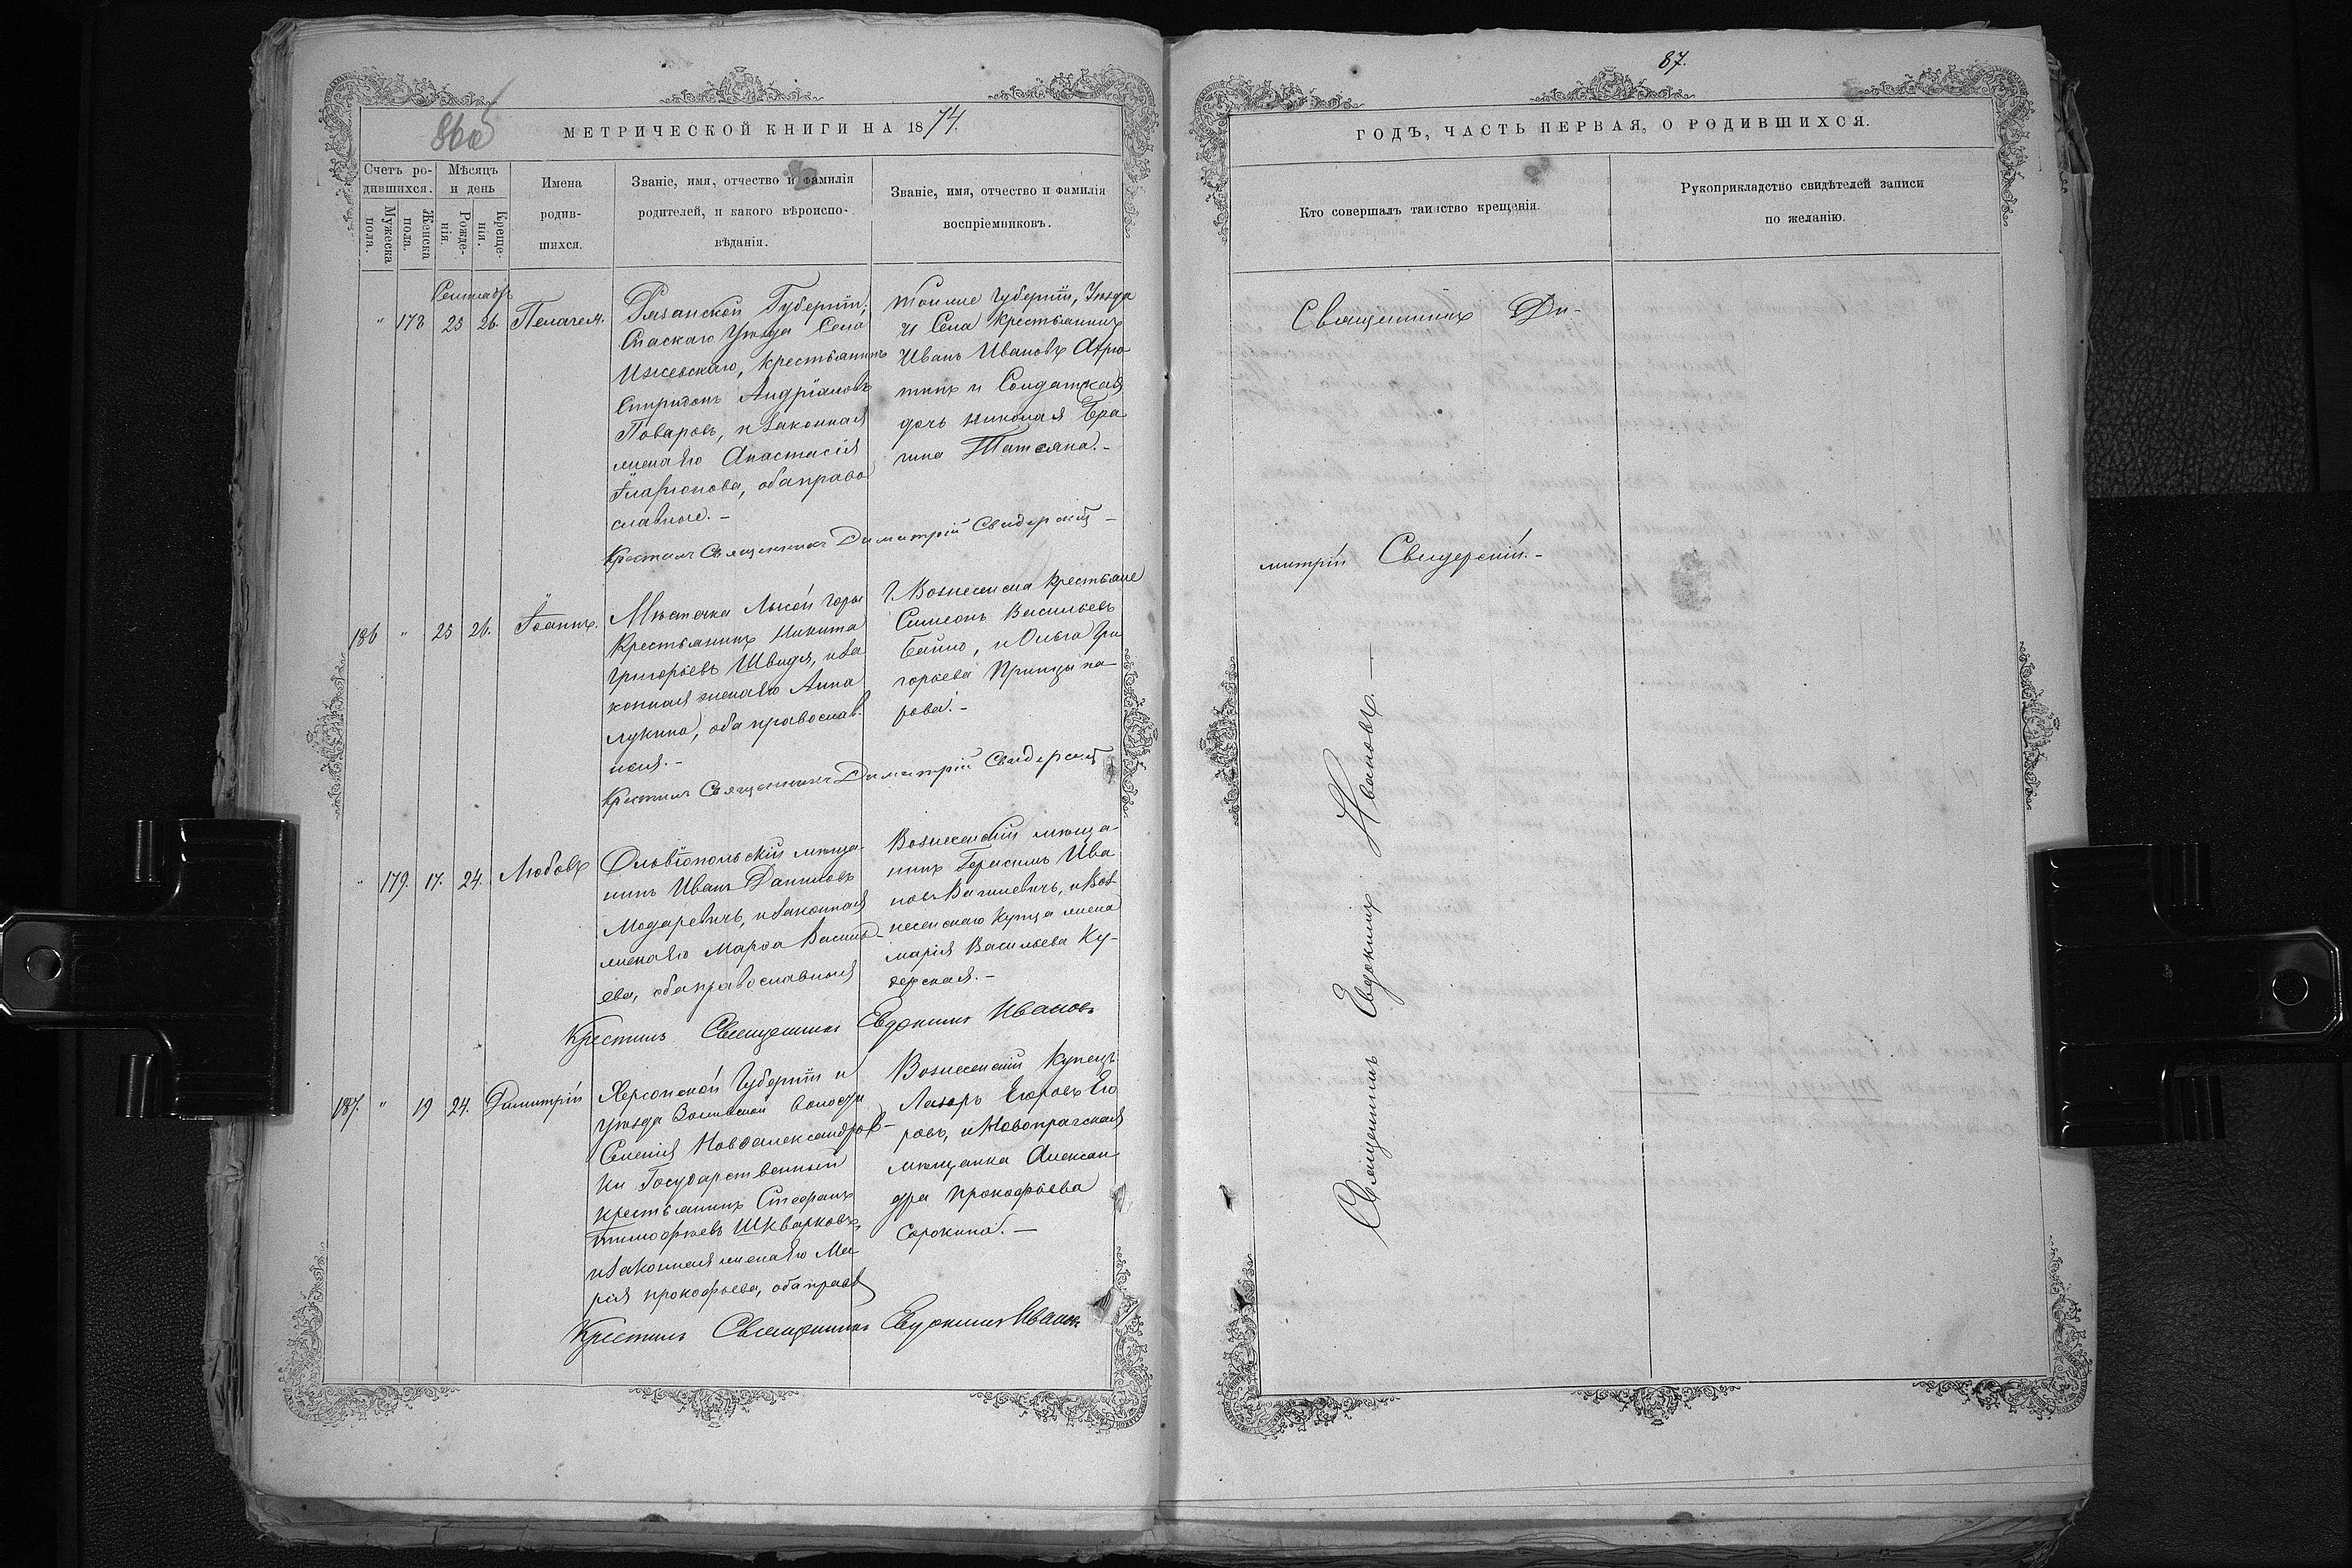 86об
МЕТРИЧЕСКОЙ КНИГИ НА 1874.
Счетъ ро-
дившихся.
Мужеска
пола.
Женска
пола.
Мѣсяцъ
и день
Рожде-
нія.
Креще-
нія.
Имена
родив-
шихся.
Званіе, имя, отчество и фамилія
родителей, и какого вѣроиспо-
вѣданія.
Званіе, имя, отчество и фамилія
воспріемниковъ.
Сентябр
" 178 25 26. Пелагея.
Рязанской Губерніи,
Спаскаго Уѣзда Села
Ижевскаго, крестьянинъ
Спиридонъ Андріановъ
Поваровъ, и законная
жена его Анастасія
Иларіонова, оба право
славные.-
тойже Губерніи, Уѣзда
и Села крестьянинъ
Иванъ Ивановъ
и Солдатская
дочь Николая Бра
гина Татьяна.-
Крестилъ Священникъ Димитрій Свидерскій -
186 " 25 26. Іоаннъ.
Мѣстечка Лысой горы
Крестьянинъ Никита
Григорьевъ Швидя, и за
конная жена его Анна
Лукина, оба православ
ныя.-
Г. Вознесенска крестьяне
Симеонъ Васильевъ
Байло, и Ольга Гри
горьева
рова.-
Крестилъ Священникъ Димитрій Свидерскій
" 179. 17. 24. Любовь
Ольвіопольскій мѣща-
нинъ Иванъ Даниловъ
Модаревичъ, и законная
жена его Марѳа Василь-
ева, оба православныя
Вознесенскій мѣща-
нинъ Герасимъ Ива
новъ и Воз
несенскаго Купца жена
Марія Васильева Ку-
дерская.-
Крестилъ Священникъ Евдокимъ Ивановъ
187. " 19 24. Димитрій
Херсонской Губерніи и
уѣзда волости
Селенія Новоалександров-
ки Государственный
крестьянинъ Стефанъ
Тимофѣевъ Шкварковъ,
и законная жена его Ма
рія Прокофьева, оба прав
Вознесенскій Купецъ
Лазарь Егоровъ Его
ровъ, и Новопражская
мѣщанка Алексан
дра Прокофьева
Сорокина.-
Крестилъ Священникъ Евдокимъ Иванов
87.
ГОДЪ, ЧАСТЬ ПЕРВАЯ, О РОДИВШИХСЯ.
Кто совершалъ таинство крещенія.
Рукоприкладство свидѣтелей записи
по желанію.
Священникъ Ди-
митрій Свидерскій.-
Священникъ Евдокимъ Ивановъ.-